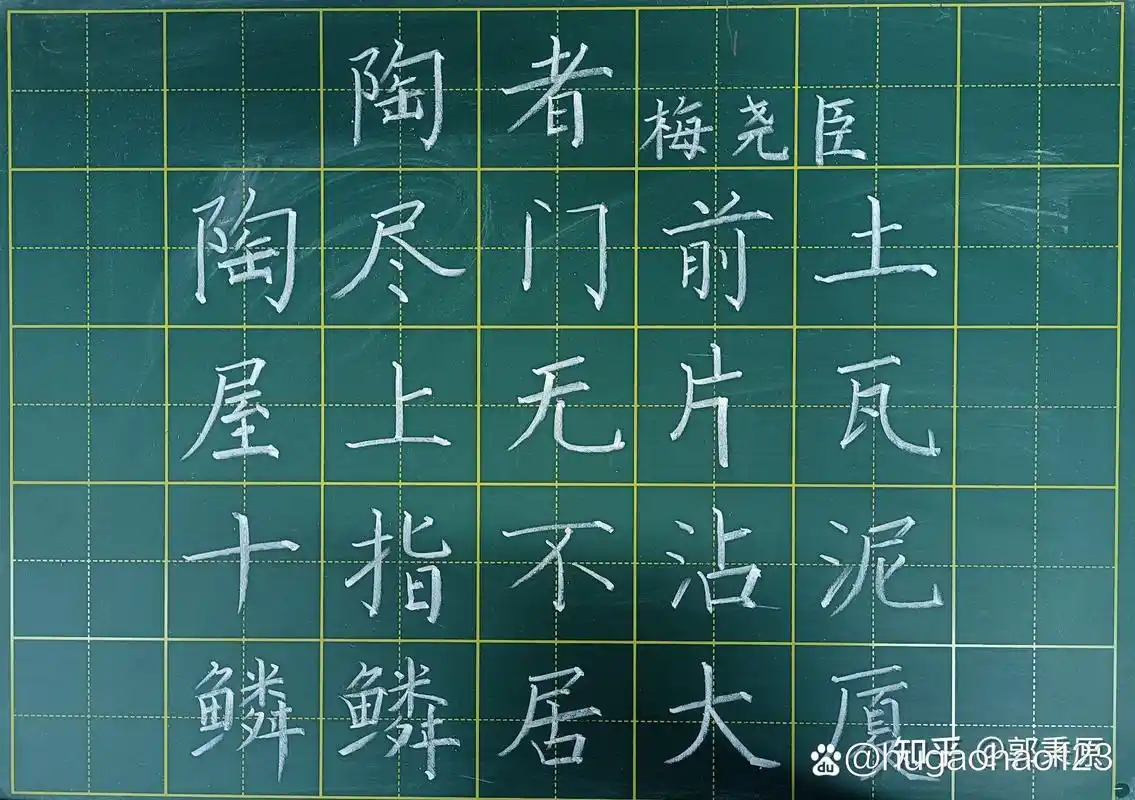 陶者 梅尧臣
陶尽门前土
屋上无片瓦
十指不沾泥
鳞鳞居大厦
知乎 @郭秉原